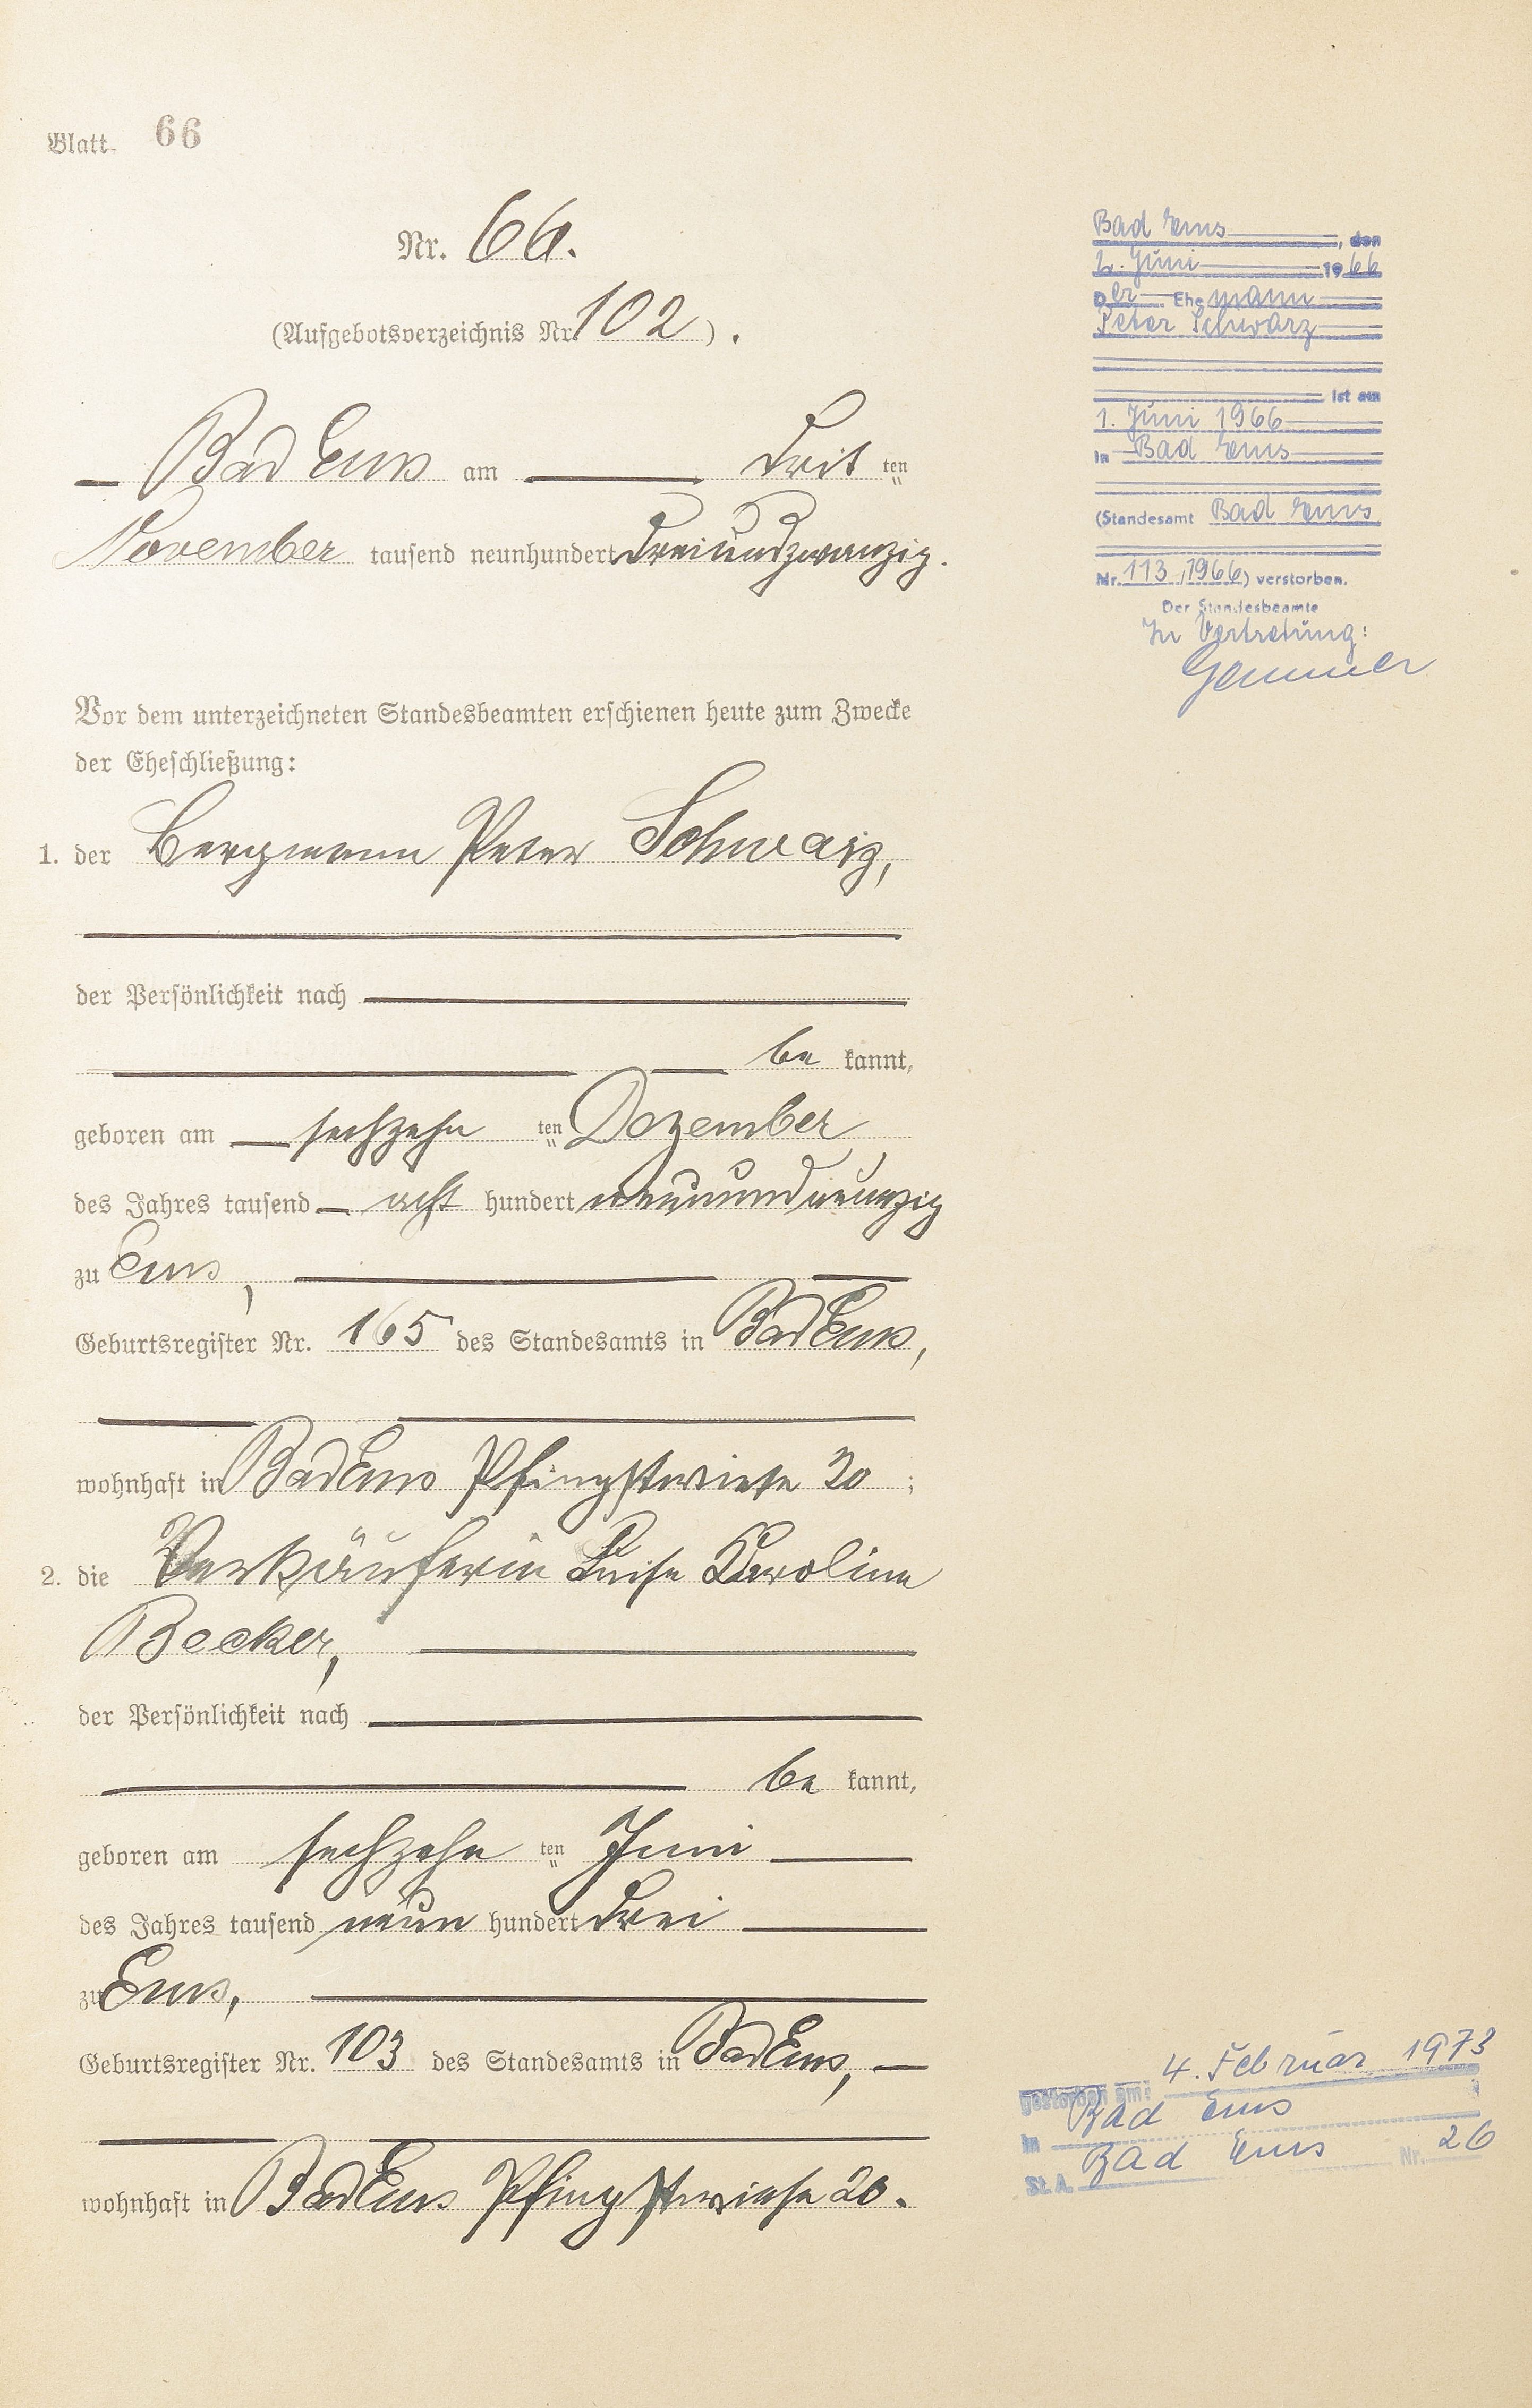 Blatt 66
Nr. 66.
(Aufgebotsverzeichnis Nr. 102).
Bad Ems am dritten
November tausend neunhundert dreiundzwanzig.
Vor dem unterzeichneten Standesbeamten erschienen heute zum Zwecke
der Eheschließung:
1. der Bergmann Peter Schwarz,
der Persönlichkeit nach
be kannt,
geboren am sechzehn ten Dezember
des Jahres tausend acht hundert neunundneunzig
zu Ems,
Geburtsregister Nr. 165 des Standesamts in Bad Ems,
wohnhaft in Bad Ems Pfingstwiese 20;
2. die Verkäuferin Luise Karoline
Becker,
der Persönlichkeit nach
be kannt,
geboren am sechzehn ten Juni
des Jahres tausend neun hundert drei
zu Ems,
Geburtsregister Nr. 103 des Standesamts in Bad Ems,
wohnhaft in Bad Ems Pfingstwiese 20.
Bad Ems, den
2. Juni 1966
Der Ehemann
Peter Schwarz
ist am
1. Juni 1966
in Bad Ems
(Standesamt Bad Ems
Nr. 113/1966) verstorben.
Der Standesbeamte
In Vertretung:
gestorben am: 4. Februar 1973
in Bad Ems
St. A. Bad Ems Nr. 26